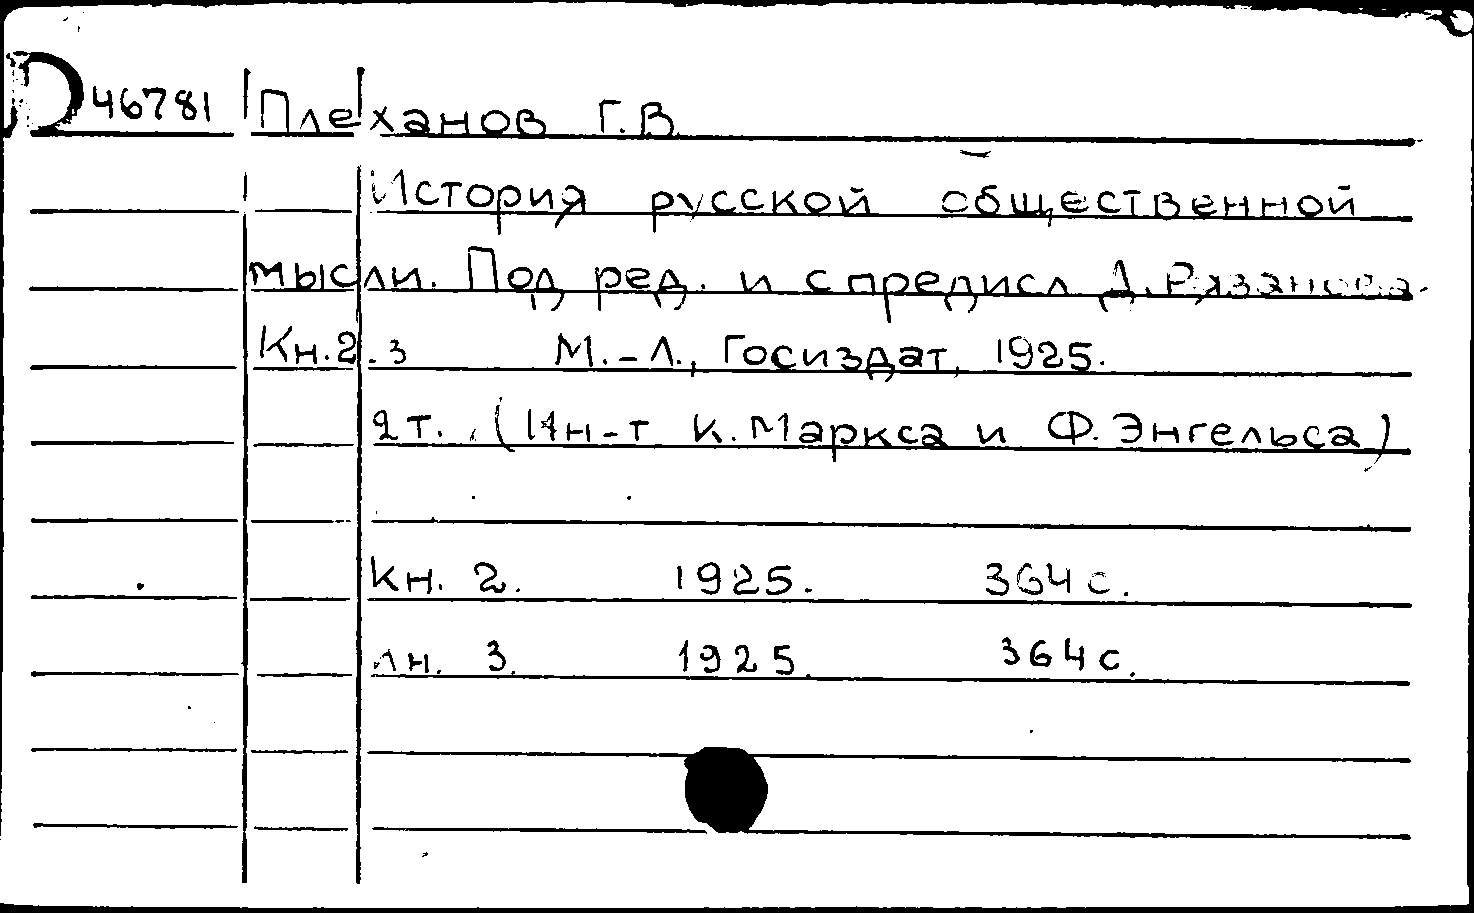 D 46781 Плеханов Г.В.
История русской общественной
мысли. Под ред. и с предисл Д. Рязанова.
Кн. 2. 3 М.-Л., Госиздат, 1925.
2 т. (Ин-т К. Маркса и Ф. Энгельса)
Кн. 2. 1925. 364 с.
Кн. 3. 1925. 364 с.